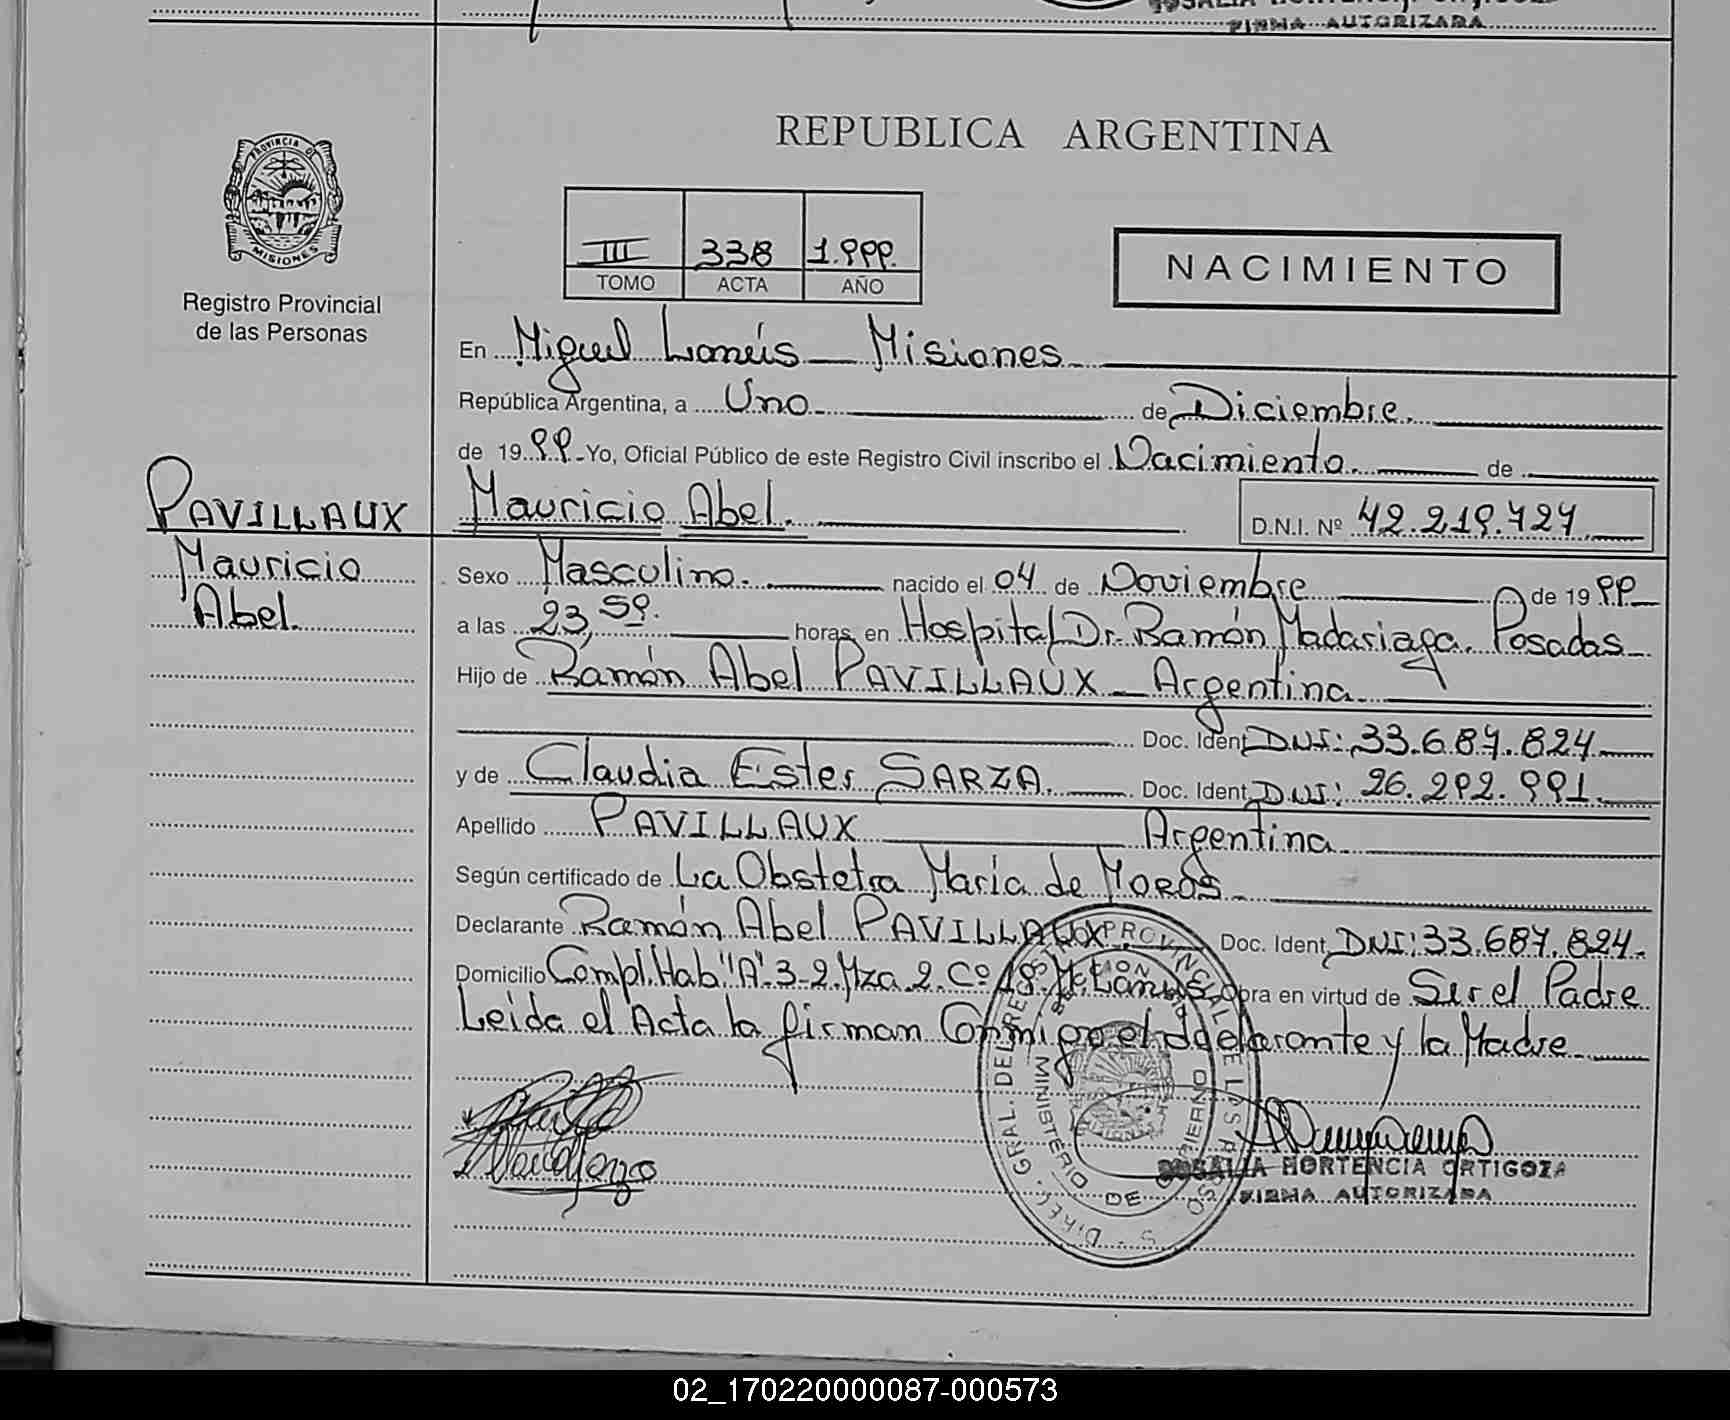 FIRMA AUTORIZADA
REPUBLICA ARGENTINA
PROVINCIA DE
MISIONES
Registro Provincial
de las Personas
III 338 1.999.
TOMO ACTA AÑO
NACIMIENTO
En Miguel Lanús Misiones
República Argentina, a Uno de Diciembre.
de 19 99 Yo, Oficial Público de este Registro Civil inscribo el Nacimiento de
PAVILLAUX
Mauricio
Abel.
Mauricio Abel. D.N.I. Nº 42.219.727
Sexo Masculino. nacido el 04 de Noviembre de 19 99
a las 23,59. horas, en Hospital Dr. Ramón Madariaga. Posadas
Hijo de Ramón Abel PAVILLAUX Argentina
Doc. Ident. DNI: 33.687.824
y de Claudia Ester SARZA. Doc. Ident. DNI: 26.292.991.
Apellido PAVILLAUX Argentina
Según certificado de La Obstetra María de MORAS
Declarante Ramón Abel PAVILLAUX Doc. Ident. DNI: 33.687.824.
Domicilio Compl. Hab "A" 3-2. Mza 2. Cº 18. M. Lanús Obra en virtud de Ser el Padre
Leida el Acta la firman Conmigo el ddelarante y la Madre
ROSALIA HORTENCIA ORTIGOZA
FIRMA AUTORIZADA
MINISTERIO DE GOBIERNO
02_170220000087-000573